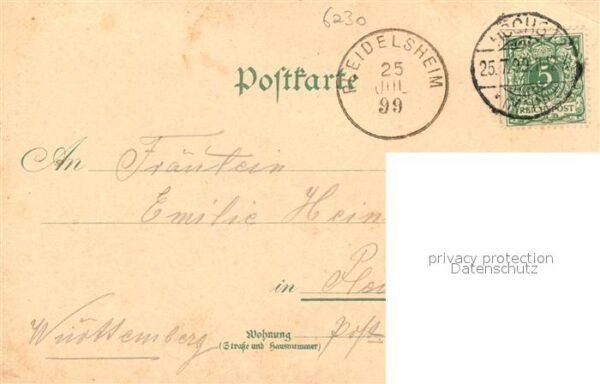 6230
HÖCHST
25.7.99
MAIN
5
REICHSPOST
PLEIDELSHEIM
25
JUL
99
Postkarte
An Fräulein
Emilie Hein
privacy protection
Datenschutz
in Plei
Württemberg
Wohnung
(Straße und Hausnummer)
Post